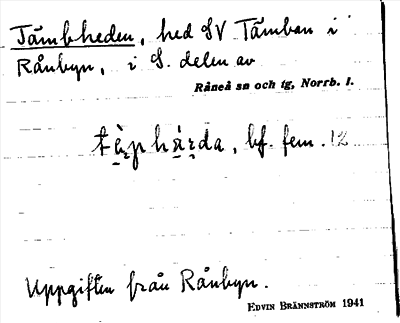 Tåmbheden, hed SV Tåmban i
Rånbyn, i S. delen av
Råneå sn och tg, Norrb. l.
bf. fem. 12
Uppgiften från Rånbyn.
EDVIN BRÄNNSTRÖM 1941